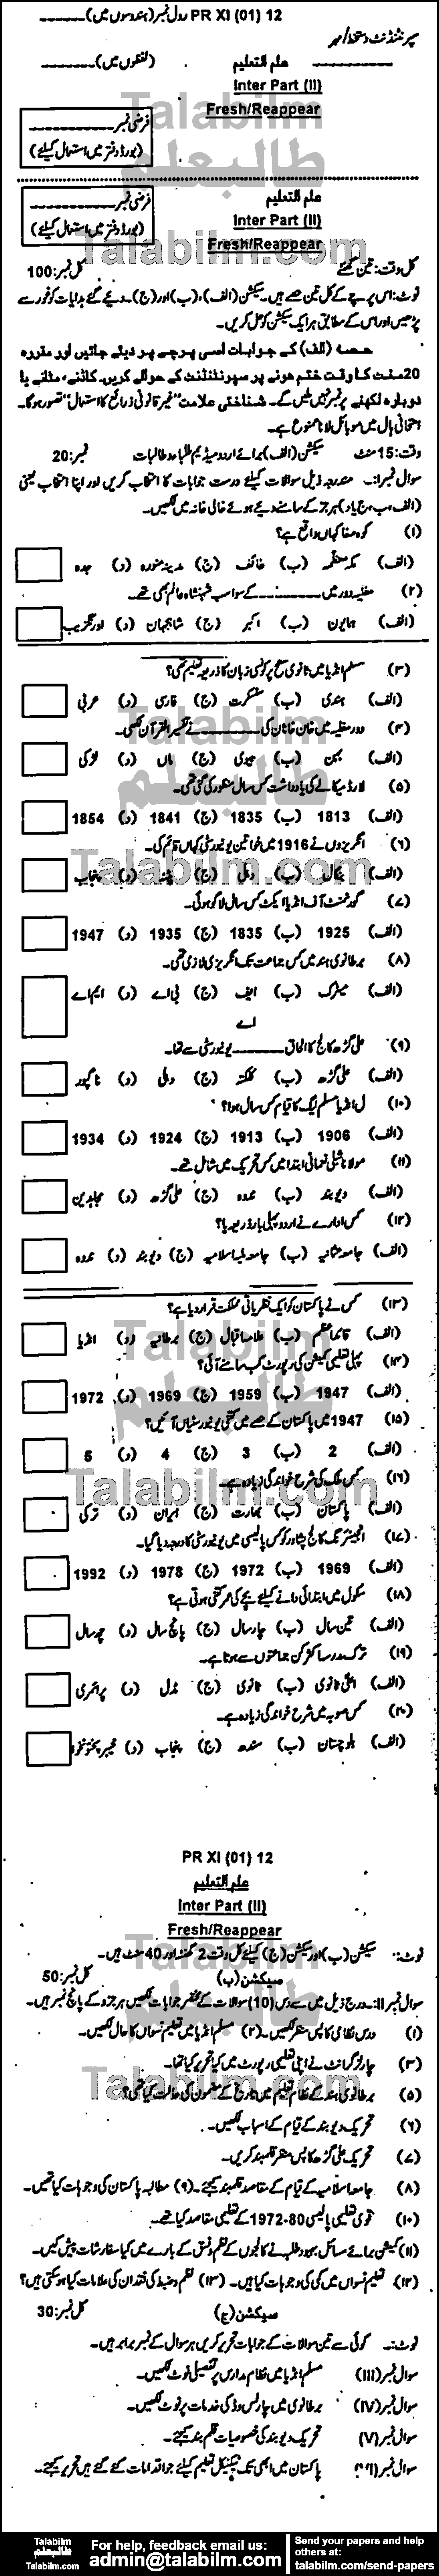 PR XI (01) 12 رول نمبر (ہندسوں میں)
سپرنٹنڈنٹ دستخط/مہر
علم التعلیم (لفظوں میں)
Inter Part (II)
Fresh/Reappear
فرضی نمبر
(بورڈ دفتر میں استعمال کیلئے)
علم التعلیم
Inter Part (II)
Fresh/Reappear
فرضی نمبر
(بورڈ دفتر میں استعمال کیلئے)
کل وقت: تین گھنٹے کل نمبر: 100
نوٹ: اس پرچے کے کل تین حصے ہیں۔ سیکشن (الف)، (ب) اور (ج)۔ دیئے گئے ہدایات کو غور سے
پڑھیں اور اس کے مطابق ہر ایک سیکشن کو حل کریں۔
حصہ (الف) کے جوابات اسی پرچے پر دیئے جائیں اور مقررہ
20 منٹ کا وقت ختم ہونے پر سپرنٹنڈنٹ کے حوالے کریں۔ کاٹنے، مٹانے یا
دوبارہ لکھنے پر نمبر نہیں ملیں گے۔ شناختی علامت "غیر قانونی ذرائع کا استعمال" تصور ہوگا۔
امتحانی ہال میں موبائل لانا ممنوع ہے۔
وقت: 15 منٹ سیکشن (الف) برائے اردو میڈیم طلباء و طالبات نمبر: 20
سوال نمبر I:۔ مندرجہ ذیل سوالات کیلئے درست جوابات کا انتخاب کریں اور اپنا انتخاب یعنی
(الف، ب، ج یا د) ہر جز کے سامنے دیے ہوئے خالی خانہ میں لکھیں۔
(۱) کوہ صفا کہاں واقع ہے؟
(الف) مکہ معظمہ (ب) طائف (ج) مدینہ منورہ (د) جدہ
(۲) مغلیہ دور میں ________ کے سوا سب شہنشاہ عالم بھی تھے۔
(الف) ہمایون (ب) اکبر (ج) شاہجہان (د) اورنگزیب
(۳) مسلم انڈیا میں ثانوی سطح پر کونسی زبان کا ذریعہ تعلیم تھی؟
(الف) ہندی (ب) سنسکرت (ج) فارسی (د) عربی
(۴) دور مغلیہ میں خان خاناں کی ________ نے تفسیر القرآن لکھی۔
(الف) بہن (ب) بیوی (ج) ماں (د) لڑکی
(۵) لارڈ میکالے کی یادداشت کس سال منظور کی گئی تھی۔
(الف) 1813 (ب) 1835 (ج) 1841 (د) 1854
(۶) انگریزوں نے 1916 میں خواتین یونیورسٹی کہاں قائم کی۔
(الف) بنگال (ب) دہلی (ج) پٹنہ (د) پنجاب
(۷) گورنمنٹ آف انڈیا ایکٹ کس سال لاگو ہوئی۔
(الف) 1925 (ب) 1835 (ج) 1935 (د) 1947
(۸) برطانوی ہند میں کس جماعت تک انگریزی لازمی تھی۔
(الف) میٹرک (ب) ایف اے (ج) بی اے (د) ایم اے
(۹) علی گڑھ کالج کا الحاق ________ یونیورسٹی سے تھا۔
(الف) علی گڑھ (ب) کلکتہ (ج) دہلی (د) ناگپور
(۱۰) آل انڈیا مسلم لیگ کا قیام کس سال ہوا؟
(الف) 1906 (ب) 1913 (ج) 1924 (د) 1934
(۱۱) مولانا شبلی نعمانی ابتدا میں کس تحریک میں شامل تھے۔
(الف) دیوبند (ب) ندوہ (ج) علی گڑھ (د) مجاہدین
(۱۲) کس ادارے نے اردو پہلی بار ذریعہ بنایا؟
(الف) جامعہ عثمانیہ (ب) جامعہ ملیہ اسلامیہ (ج) دیوبند (د) ندوہ
(۱۳) کس نے پاکستان کو ایک نظریاتی مملکت قرار دیا ہے؟
(الف) قائد اعظم (ب) علامہ اقبال (ج) برطانیہ (د) انڈیا
(۱۴) پہلی تعلیمی کمیشن کی رپورٹ کب سامنے آئی؟
(الف) 1947 (ب) 1959 (ج) 1969 (د) 1972
(۱۵) 1947 میں پاکستان کے حصے میں کتنی یونیورسٹیاں آئیں؟
(الف) 2 (ب) 3 (ج) 4 (د) 5
(۱۶) کس ملک کی شرح خواندگی زیادہ ہے۔
(الف) پاکستان (ب) بھارت (ج) ایران (د) ترکی
(۱۷) انجینئرنگ کالج پشاور کو کس پالیسی میں یونیورسٹی کا درجہ دیا گیا۔
(الف) 1969 (ب) 1972 (ج) 1978 (د) 1992
(۱۸) سکول میں ابتدائی داخلے کیلئے بچے کی عمر کتنی ہوتی ہے؟
(الف) تین سال (ب) چار سال (ج) پانچ سال (د) چھ سال
(۱۹) ترک مدرسہ اکثر کن جماعتوں سے ہوتا ہے۔
(الف) اعلیٰ ثانوی (ب) ثانوی (ج) مڈل (د) پرائمری
(۲۰) کس صوبہ میں شرح خواندگی زیادہ ہے۔
(الف) بلوچستان (ب) سندھ (ج) پنجاب (د) خیبر پختونخوا
PR XI (01) 12
علم التعلیم
Inter Part (II)
Fresh/Reappear
نوٹ: سیکشن (ب) اور سیکشن (ج) کیلئے کل وقت 2 گھنٹہ اور 40 منٹ ہیں۔
سیکشن (ب) کل نمبر: 50
سوال نمبر II:۔ درج ذیل میں سے دس (10) سوالات کے مختصر جوابات لکھیں ہر جزو کے پانچ نمبر ہیں۔
(۱) درس نظامی کا پس منظر لکھیں۔ (۲) مسلم انڈیا میں تعلیم نسواں کا حال لکھیں۔
(۳) چارلز گرانٹ نے اپنی تعلیمی رپورٹ میں کیا تحریر کیا تھا۔
(۵) برطانوی ہند کے نظام تعلیم میں تاریخ کے مضمون کی حالت کیا تھی؟
(۶) تحریک دیوبند کے قیام کے اسباب لکھیں۔
(۷) تحریک علی گڑھ کا پس منظر قلمبند کریں۔
(۸) جامعہ اسلامیہ کے قیام کے مقاصد قلمبند کیجئے۔ (۹) مطالبہ پاکستان کی وجوہات کیا تھیں۔
(۱۰) قومی تعلیمی پالیسی 80-1972 کے تعلیمی مقاصد کیا تھے۔
(۱۱) کمیشن برائے مسائل بہبود طلبہ نے کالجوں کے نظم و نسق کے بارے میں کیا سفارشات پیش کیں۔
(۱۲) تعلیم نسواں میں کمی کی وجوہات کیا ہیں۔ (۱۳) نظم و ضبط کی فقدان کی علامات کیا ہو سکتی ہیں؟
سیکشن (ج) کل نمبر: 30
نوٹ:۔ کوئی سے تین سوالات کے جوابات تحریر کریں ہر سوال کے نمبر برابر ہیں۔
سوال نمبر (III) مسلم انڈیا میں نظام مدارس پر تفصیلی نوٹ لکھیں۔
سوال نمبر (IV) برطانوی میں چارلس وڈ کی خدمات پر نوٹ لکھیں۔
سوال نمبر (V) تحریک دیوبند کی خصوصیات قلم بند کیجئے۔
سوال نمبر پاکستان میں ابھی تک ٹیکنیکل تعلیم کیلئے جو اقدامات کئے گئے ہیں تحریر کیجئے۔
Talabilm
طالبعلم
Talabilm.com
For help, feedback email us:
admin@talabilm.com
Send your papers and help
others at:
talabilm.com/send-papers